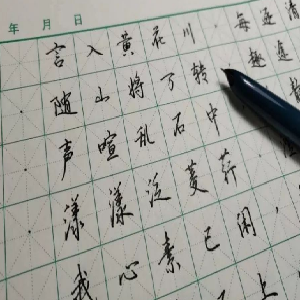 年 月 日
言入黄花川，每逐清
随山将万转 趣
声喧乱石中
漾漾泛菱荇
我心素已闲，
上